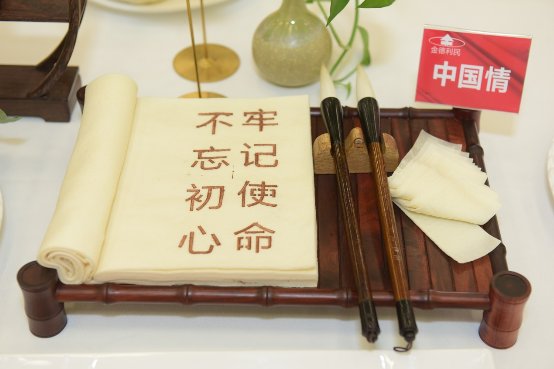 不忘初心
牢记使命
金德利民
中国情